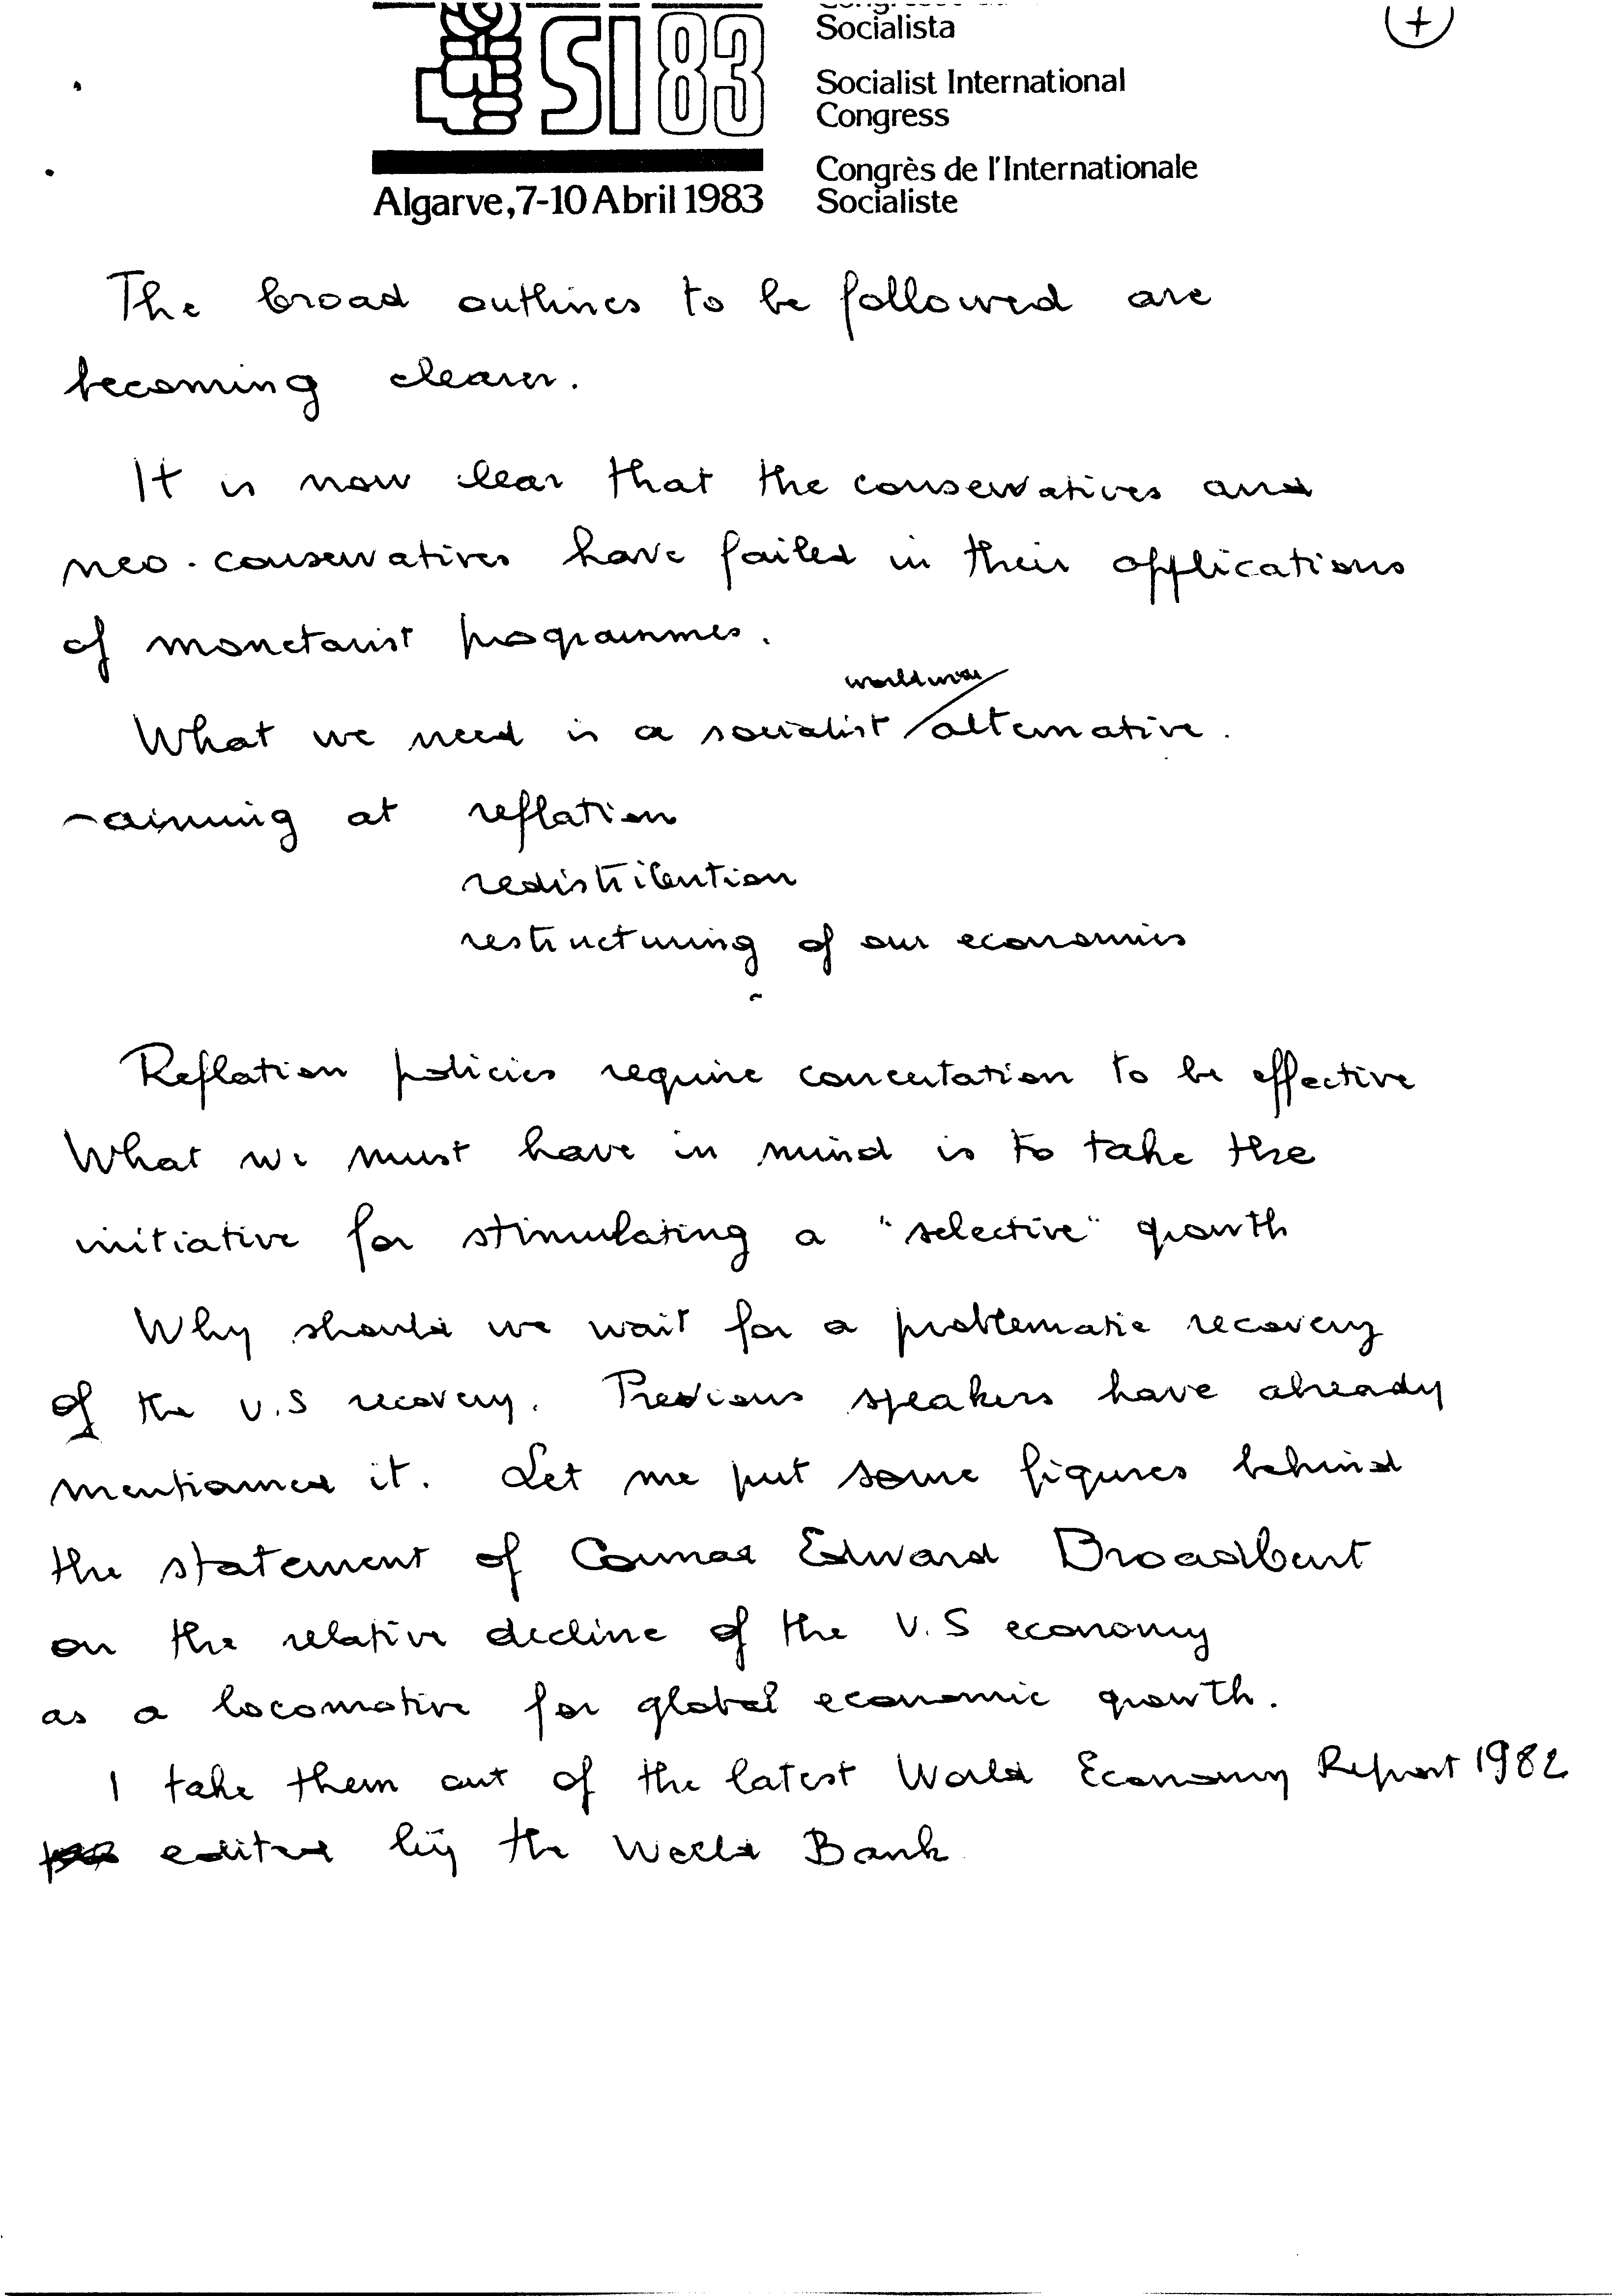 SI 83
Algarve, 7-10 Abril 1983
Socialista
Socialist International
Congress
Congrès de l'Internationale
Socialiste
+
The broad outlines to be followed are
becoming clearer.
It is now clear that the conservatives and
neo-conservatives have failed in their applications
of monetarist programmes.
worldwide
What we need is a socialist / alternative.
- aiming at reflation
redistribution
restructuring of our economies
Reflation policies require concertation to be effective
What we must have in mind is to take the
initiative for stimulating a "selective" growth
Why should we wait for a problematic recovery
of the U.S recovery. Previous speakers have already
mentioned it. Let me put some figures behind
the statement of Edward Broadbent
on the relative decline of the U.S economy
as a locomotive for global economic growth.
I take them out of the latest World Economy Report 1982
edited by the World Bank